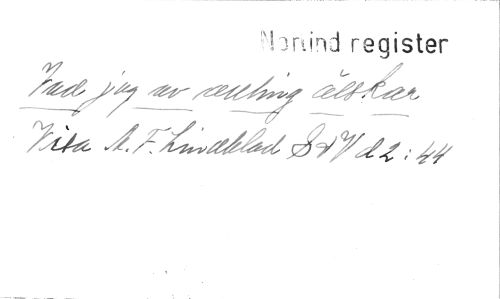 Norlind register
Vad jag av älskar
Visa A. F. Lindblad SvV d 2 : 44